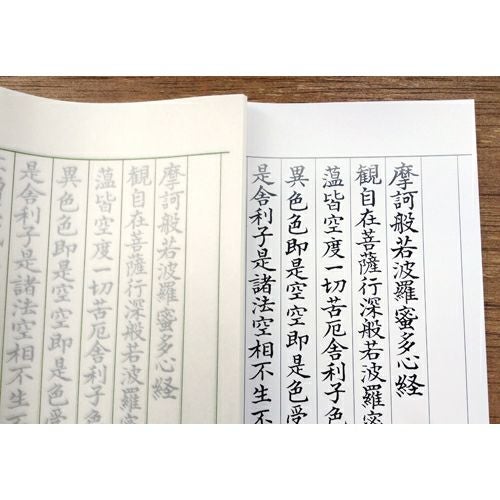 摩訶般若波羅蜜多心経
観自在菩薩行深般若波羅蜜
薀皆空度一切苦厄舎利子色
異色色即是空空即是色受
是舎利子是諸法空相不生不
摩訶般若波羅蜜多心経
観自在菩薩行深般若波羅蜜
薀皆空度一切苦厄舎利子色
異色色即是空空即是色受
是舎利子是諸法空相不生不